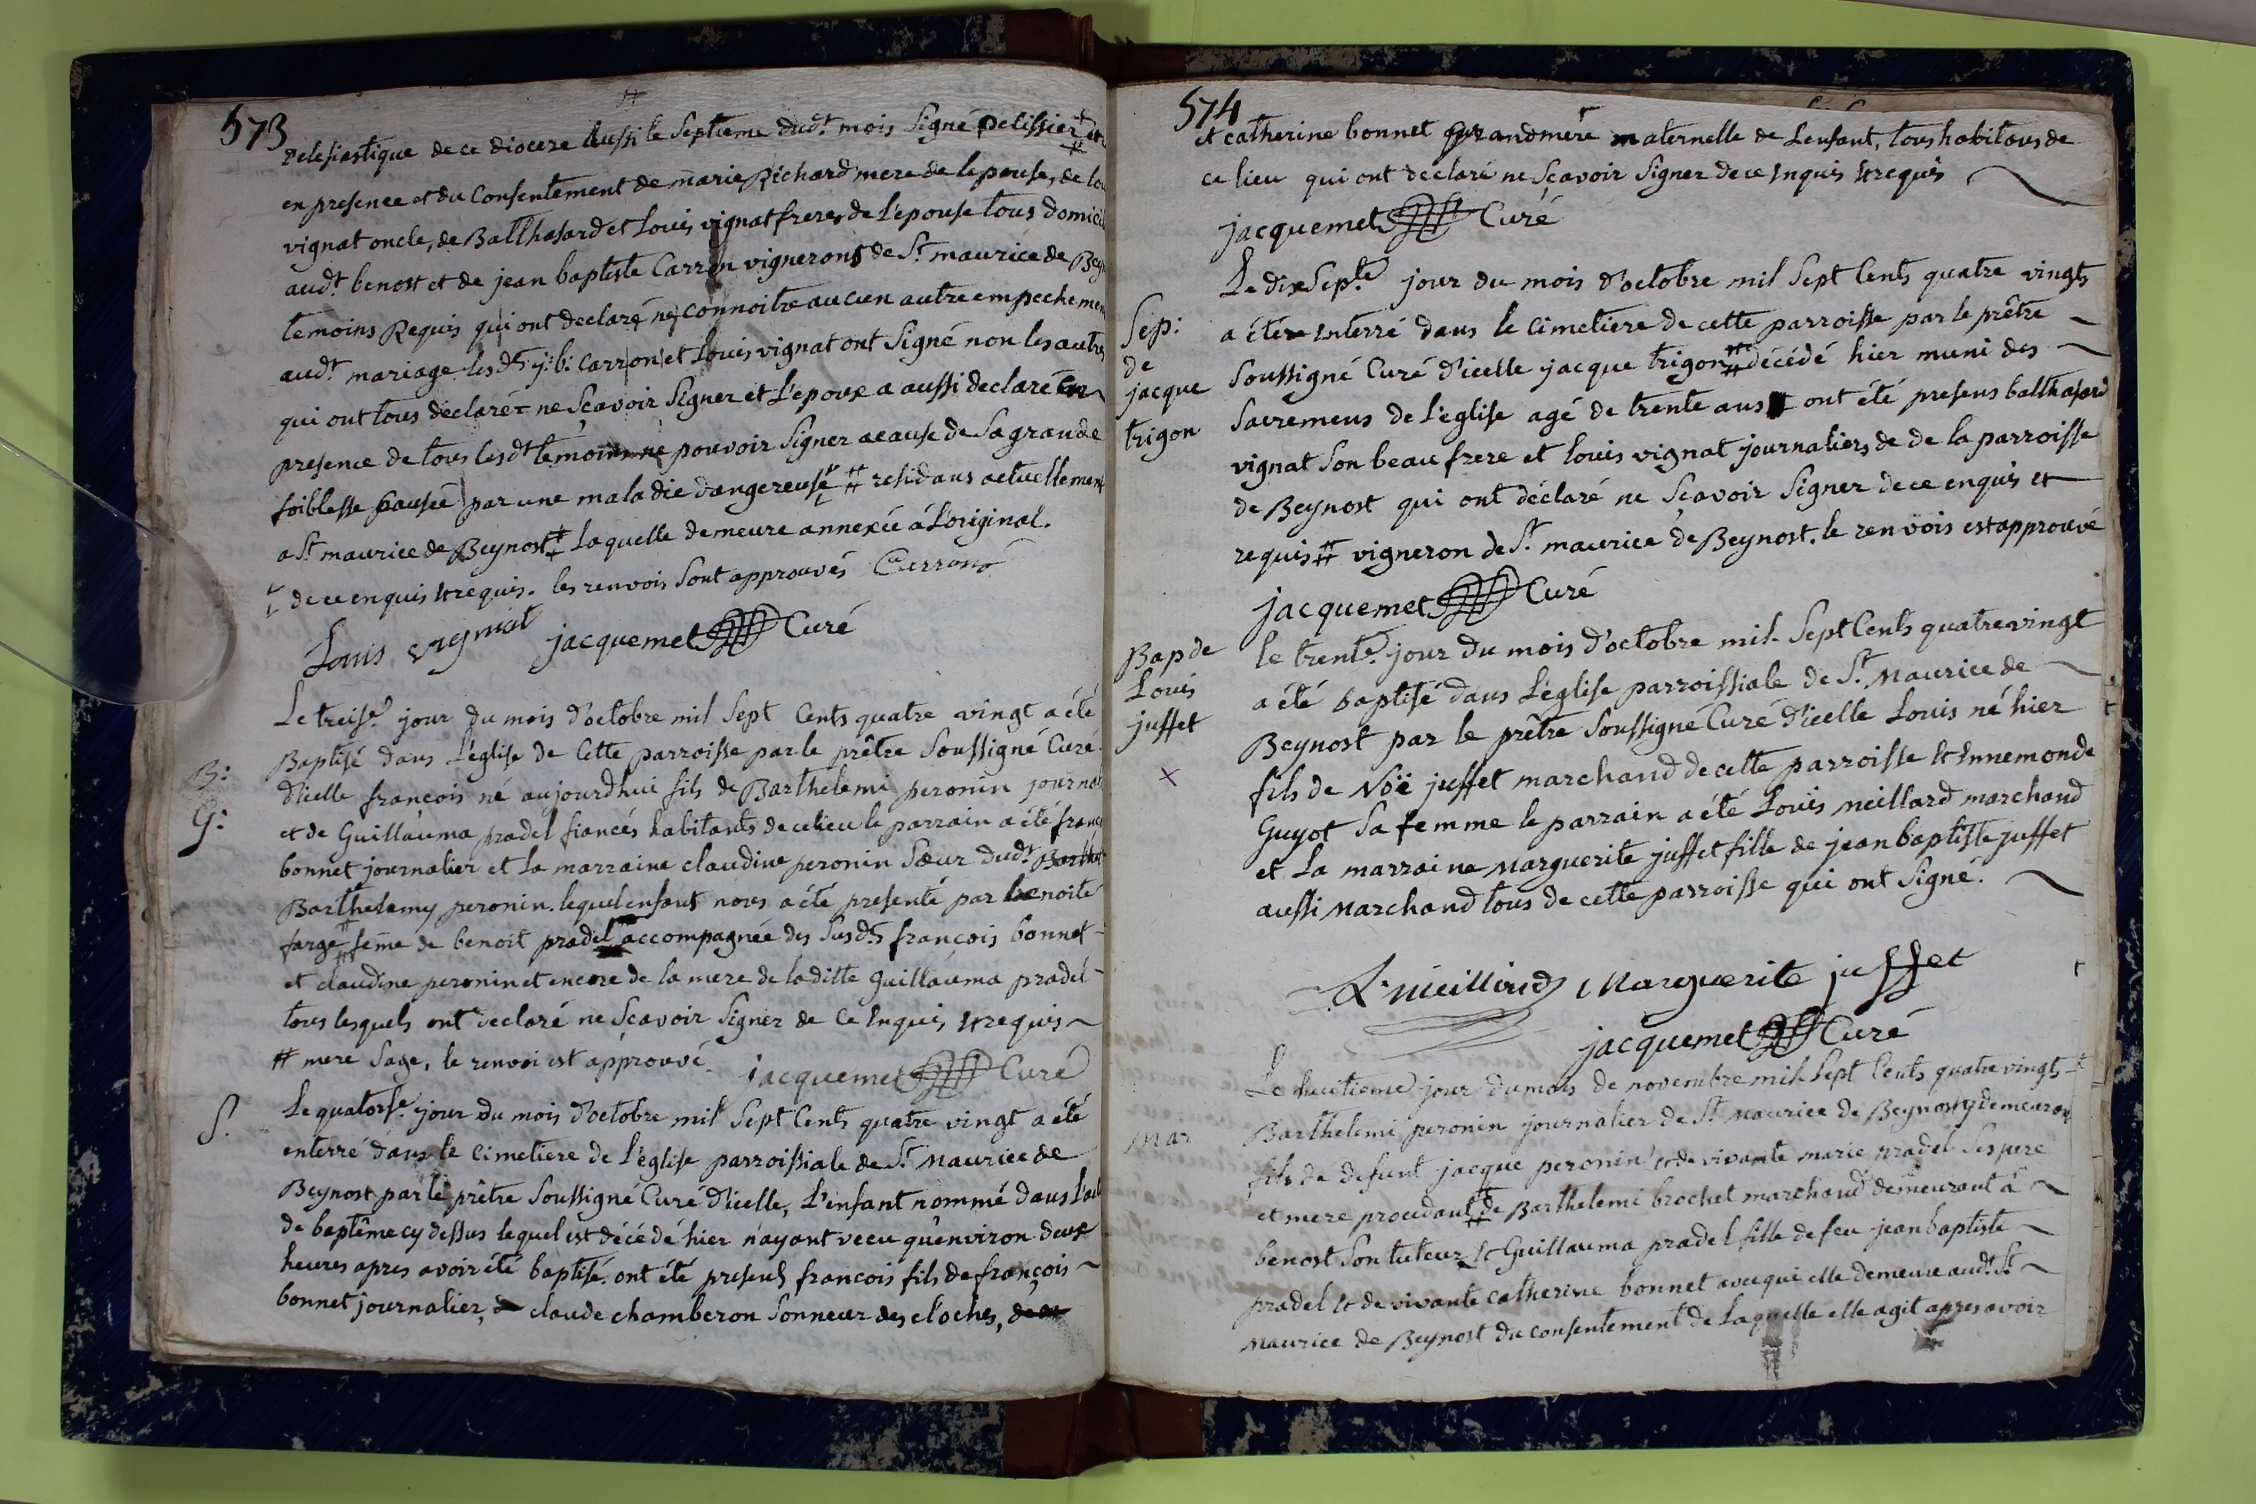 573
eclesiastique de ce diocese Aussi le Septieme dudt mois Signé pelissier et
en presence et du Consentement de marie Richard mere de lepouse, de
vignat oncle, de Balthasard et Louis vignat freres de l'epouse tous
audt benost et de jean baptiste Carron vignerons de St maurice de
temoins Requis qui ont declaré ne connoitre aucun autre empechemen
audt mariage les dts j: b: Carron et Louis vignat ont Signé non les autres
qui ont tous déclaré ne Sçavoir Signer et L'epoux a aussi declaré en
presence de tous les dts temoins ne pouvoir Signer acause de Sa grande
foiblesse causée par une maladie dangereuse # residans actuellement
a St maurice de Beynost # Laquelle demeure annexée à L'original.
de ce enquis et requis. les renvois Sont approuvés Carron
Louis vignat jacquemet Curé
B:
G:
Le treise. jour du mois d'octobre mil Sept Cents quatre vingt a été
Baptisé dans L'église de Cette parroisse par le prêtre Soussigné Curé
d'icelle françois né aujourdhui fils de Barthelemi peronin journa
et de Guillauma pradel fiancés habitants de ce lieu le parrain a été
bonnet journalier et La marraine claudine peronin Sœur dudt
Barthelemy peronin. lequel enfant nous a été presenté par benoite
farge # feme de benoit pradel accompagnée des Susdts françois bonnet
et claudine peronin et encore de la mere de laditte Guillauma pradel
tous lesquels ont déclaré ne Sçavoir Signer de Ce Enquis et requis
# mere Sage, le renvoi est approuvé. jacquemet Curé
S.
Le quatorse. jour Du mois d'octobre mil Sept Cents quatre vingt a été
enterré dans le Cimetiere de L'église parroissiale de St Maurice de
Beynost par le prêtre Soussigné Curé d'icelle, L'enfant nommé dans L'
de baptême cy dessus lequel est décédé hier n'ayant vecu qu'environ deux
heures apres avoir été baptisé. ont été presens françois fils de françois
bonnet journalier, claude chamberon Sonneur des cloches,
574
et catherine bonnet Grandmere maternelle de Lenfant, tous habitans de
ce lieu qui ont declaré ne Sçavoir Signer de ce Enquis et requis
jacquemet Curé
Sep:
de
jacque
trigon
Le dix Septe jour du mois d'octobre mil Sept Cents quatre vingts
a été Enterré dans le Cimetiere de cette parroisse par le prêtre
Soussigné Curé d'icelle jacque trigon # décédé hier muni des
Sacremens de L'église agé de trente ans ont été presens balthasard
vignat Son beau frere et Louis vignat journaliers de de la parroisse
de Beynost qui ont déclaré ne Sçavoir Signer de ce enquis et
requis # vigneron de St maurice de Beynost. le renvois est approuvé
jacquemet Curé
Bap de
Louis
juffet
Le trente. jour du mois d'octobre mil Sept Cents quatrevingt
a été baptisé dans L'église parroissiale de St Maurice de
Beynost par le prêtre Soussigné Curé d'icelle Louis né hier
fils de Noë juffet marchand de cette parroisse et Ennemonde
Guyot Sa femme le parrain a été Louis meillard marchand
et La marraine Marguerite juffet fille de jean baptiste juffet
aussi Marchand tous de cette parroisse qui ont Signé.
Marguerite juffet
jacquemet Curé
Mar
Le huitieme jour du mois de novembre mil Sept Cents quatre vingts
Barthelemi peronin journalier de St Maurice de Beynost y demeurant
fils de defunt jacque peronin et de vivante marie pradel Ses pere
et mere procedant # de Barthelemi brochet marchand demeurant à
benost Son tuteur, et Guillauma pradel fille de feu jean baptiste
pradel et de vivante catherine bonnet avec qui elle demeure audt St
Maurice de Beynost du consentement de Laquelle elle agit apres avoir